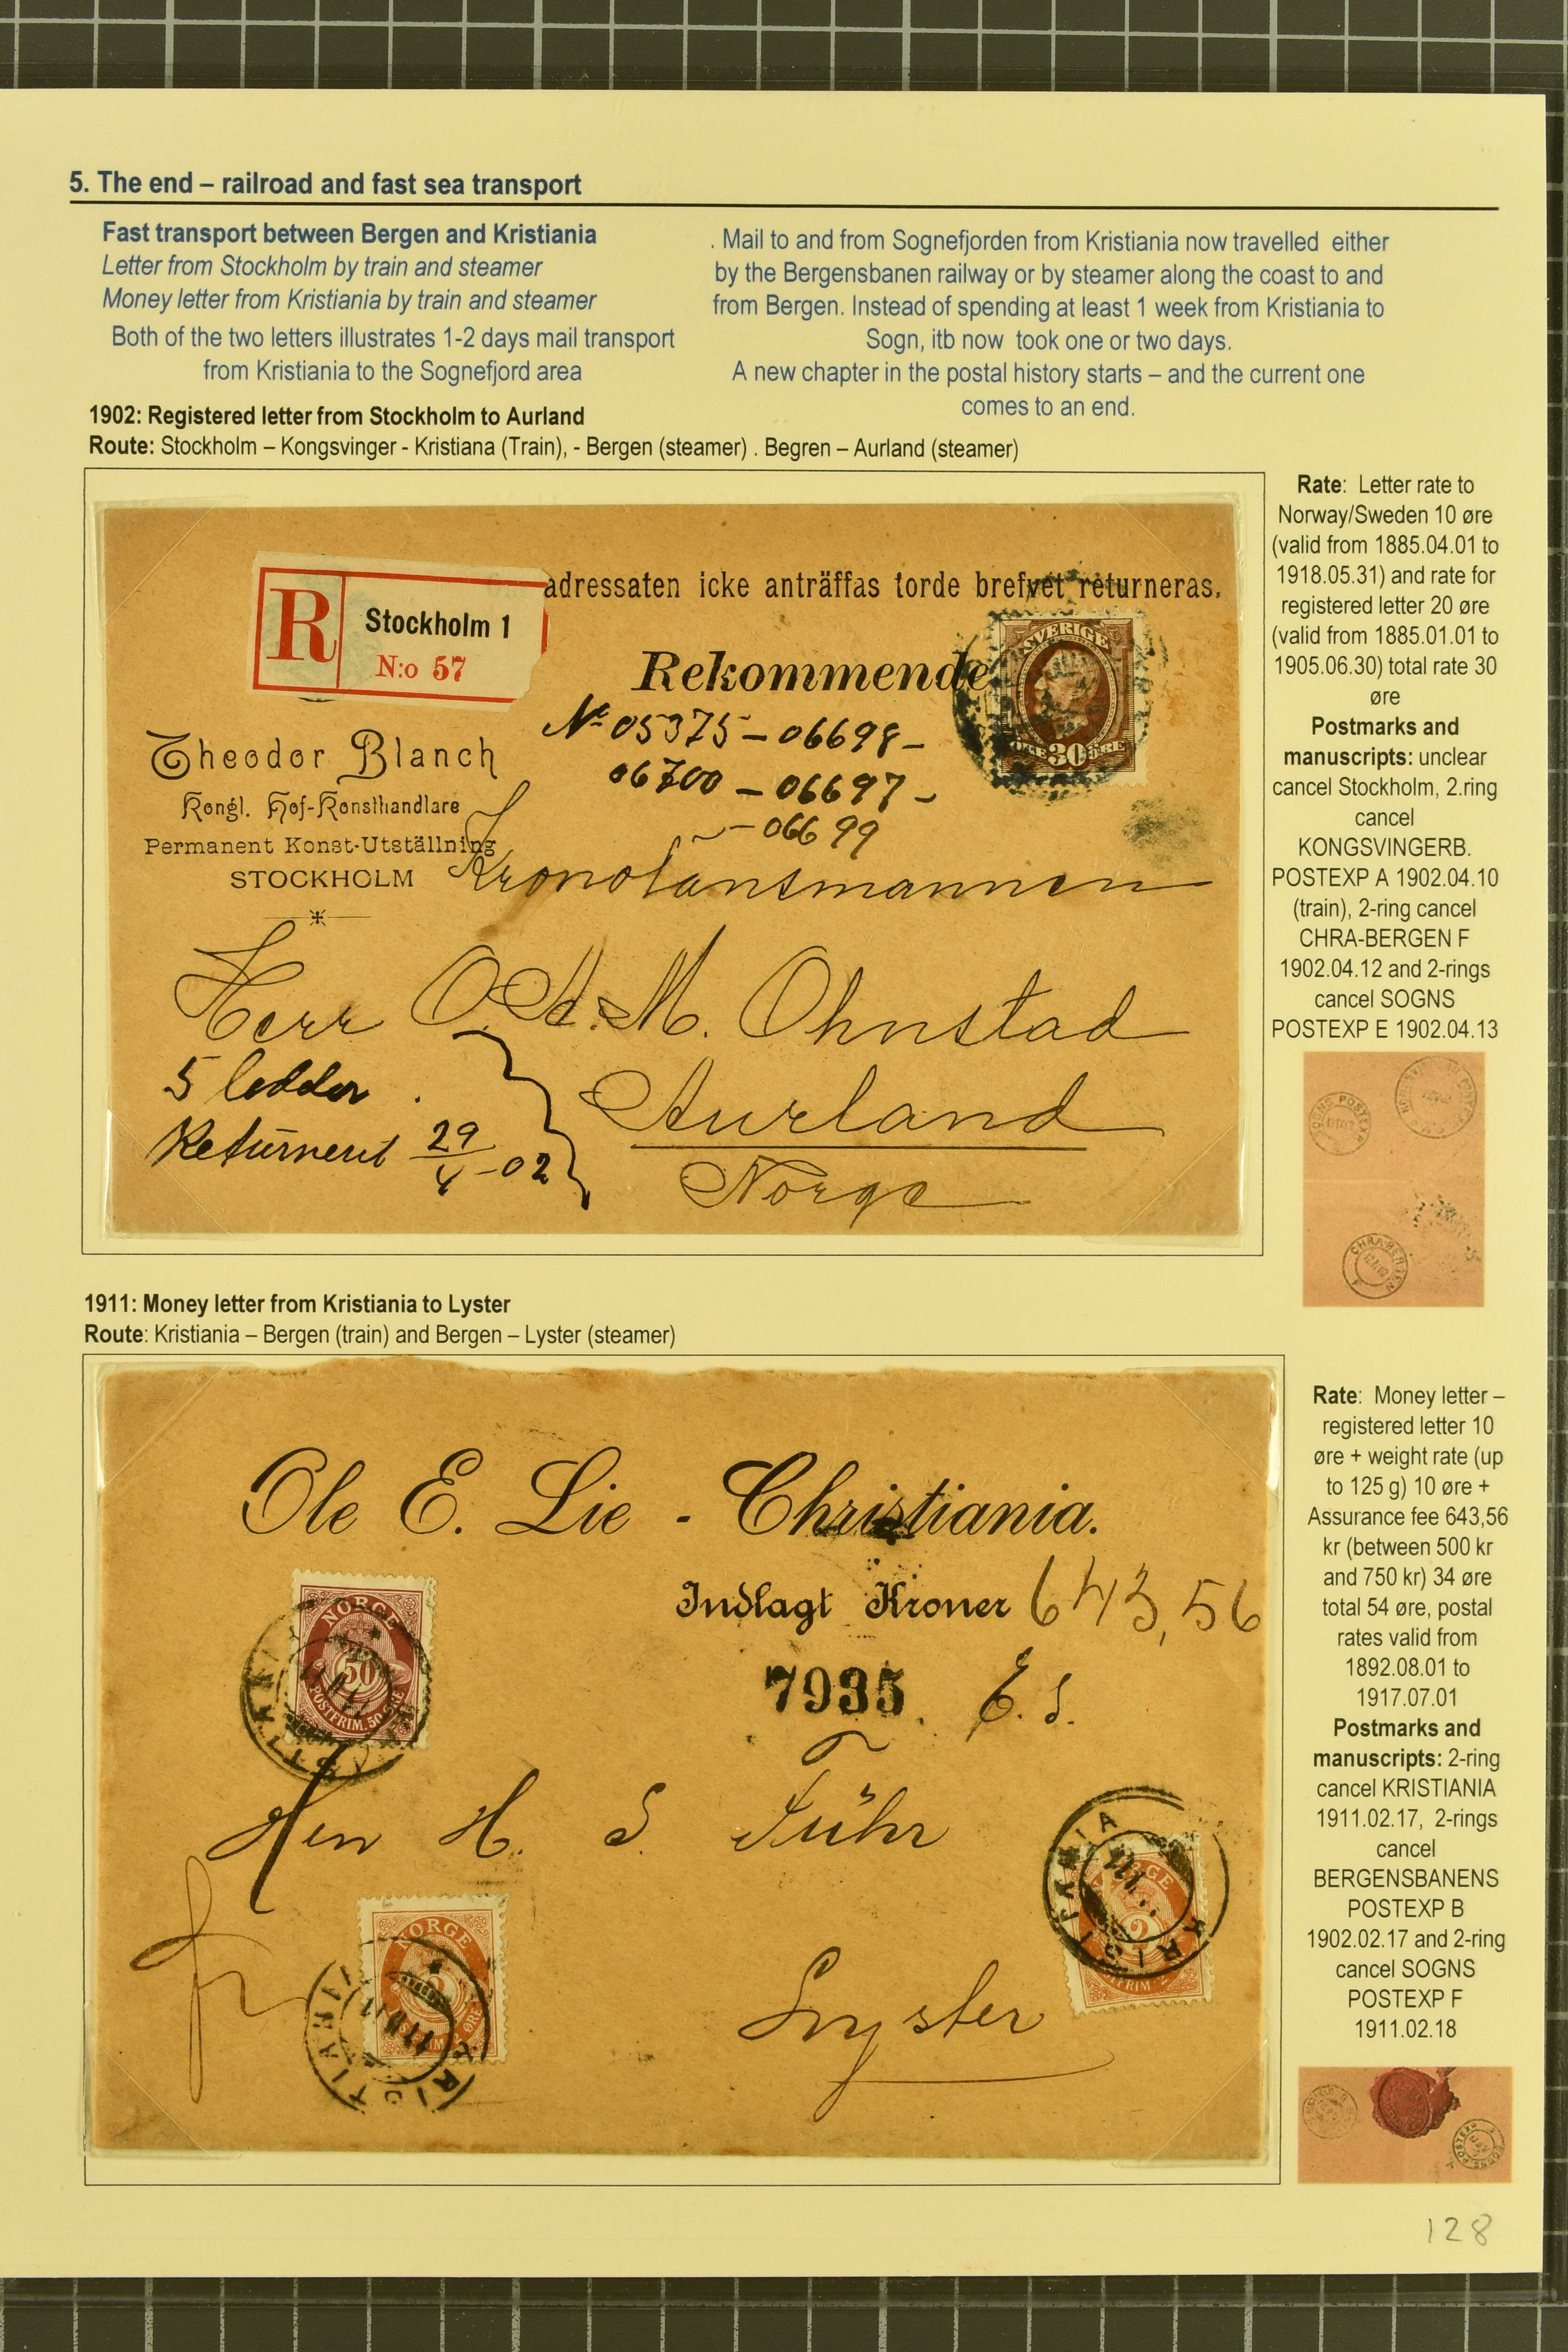 5. The end – railroad and fast sea transport
Fast transport between Bergen and Kristiania
Letter from Stockholm by train and steamer
Money letter from Kristiania by train and steamer
Both of the two letters illustrates 1-2 days mail transport
from Kristiania to the Sognefjord area
. Mail to and from Sognefjorden from Kristiania now travelled either
by the Bergensbanen railway or by steamer along the coast to and
from Bergen. Instead of spending at least 1 week from Kristiania to
Sogn, itb now took one or two days.
A new chapter in the postal history starts – and the current one
comes to an end.
1902: Registered letter from Stockholm to Aurland
Route: Stockholm – Kongsvinger - Kristiana (Train), - Bergen (steamer) . Begren – Aurland (steamer)
adressaten icke anträffas torde brefvet returneras.
R
Stockholm 1
N:o 57
SVERIGE
30
ÖRE
Rekommende
No 05375 – 06698 –
06700 – 06697 –
– 06699
Theodor Blanch
Kongl. Hof-Konsthandlare
Permanent Konst-Utställning
STOCKHOLM
Kronolänsmannen
Herr O. A. M. Ohnstad
5 lodder
Returnerut 29/4-02
Aurland
Norge
Rate: Letter rate to
Norway/Sweden 10 øre
(valid from 1885.04.01 to
1918.05.31) and rate for
registered letter 20 øre
(valid from 1885.01.01 to
1905.06.30) total rate 30
øre
Postmarks and
manuscripts: unclear
cancel Stockholm, 2.ring
cancel
KONGSVINGERB.
POSTEXP A 1902.04.10
(train), 2-ring cancel
CHRA-BERGEN F
1902.04.12 and 2-rings
cancel SOGNS
POSTEXP E 1902.04.13
SOGNS POSTEXP
CHRA-BERGEN
F
1911: Money letter from Kristiania to Lyster
Route: Kristiania – Bergen (train) and Bergen – Lyster (steamer)
Ole E. Lie - Christiania.
Indlagt Kroner 643,56
7935. E. S.
NORGE
50
POSTFRIM. 50 ØRE
KRISTIANIA
Herr H. S. Führ
NORGE
2
KRISTIANIA
17 II 11
NORGE
2
KRISTIANIA
Lyster
Rate: Money letter –
registered letter 10
øre + weight rate (up
to 125 g) 10 øre +
Assurance fee 643,56
kr (between 500 kr
and 750 kr) 34 øre
total 54 øre, postal
rates valid from
1892.08.01 to
1917.07.01
Postmarks and
manuscripts: 2-ring
cancel KRISTIANIA
1911.02.17, 2-rings
cancel
BERGENSBANENS
POSTEXP B
1902.02.17 and 2-ring
cancel SOGNS
POSTEXP F
1911.02.18
SOGNS POSTEXP
128